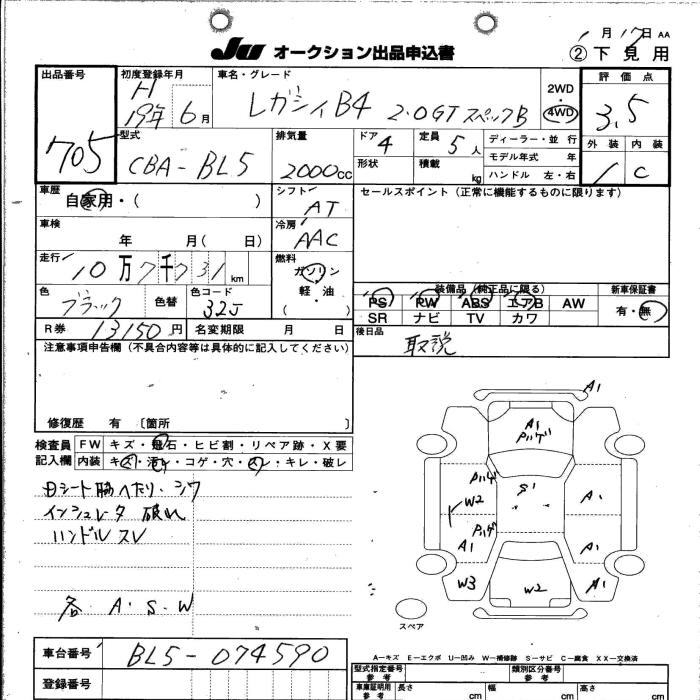 1月17日 AA
JU オークション出品申込書 ②下見用
出品番号 705
初度登録年月 H19年6月
車名・グレード レガシィB4 2.0GT スペックB
2WD・4WD
評価点 3.5
外装 内装 C
型式 CBA-BL5
排気量 2000cc
ドア 4
定員 5人
ディーラー・並行
形状
積載 kg
モデル年式 年
ハンドル 左・右
車歴 自家用・( )
シフト AT
セールスポイント(正常に機能するものに限ります)
車検 年 月( 日)
冷房 AAC
走行 10万7千731km
燃料 ガソリン・軽・油 ( )
色 ブラック
色替
色コード 32J
装備品(純正品に限る)
PS PW ABS エアB AW
SR ナビ TV カワ
新車保証書 有・無
R券 13150円
名変期限 月 日
後日品 取説
注意事項申告欄(不具合内容等は具体的に記入してください)
修復歴 有 〔箇所 〕
検査員記入欄
FW キズ・飛石・ヒビ割・リペア跡・X要
内装 キズ・汚レ・コゲ・穴・スレ・キレ・破レ
Dシート脇へたり、シワ
インシュレータ 破れ
ハンドルスレ
各 A・S・W
A1
A1
S1
W2
A1
A1
A1
W3
W2
A1
スペア
A-キズ E-エクボ U-凹み W-補修跡 S-サビ C-腐食 XX-交換済
車台番号 BL5-074590
登録番号
型式指定番号 参考
類別区分番号 参考
車庫証明用 参考
長さ cm
幅 cm
高さ cm